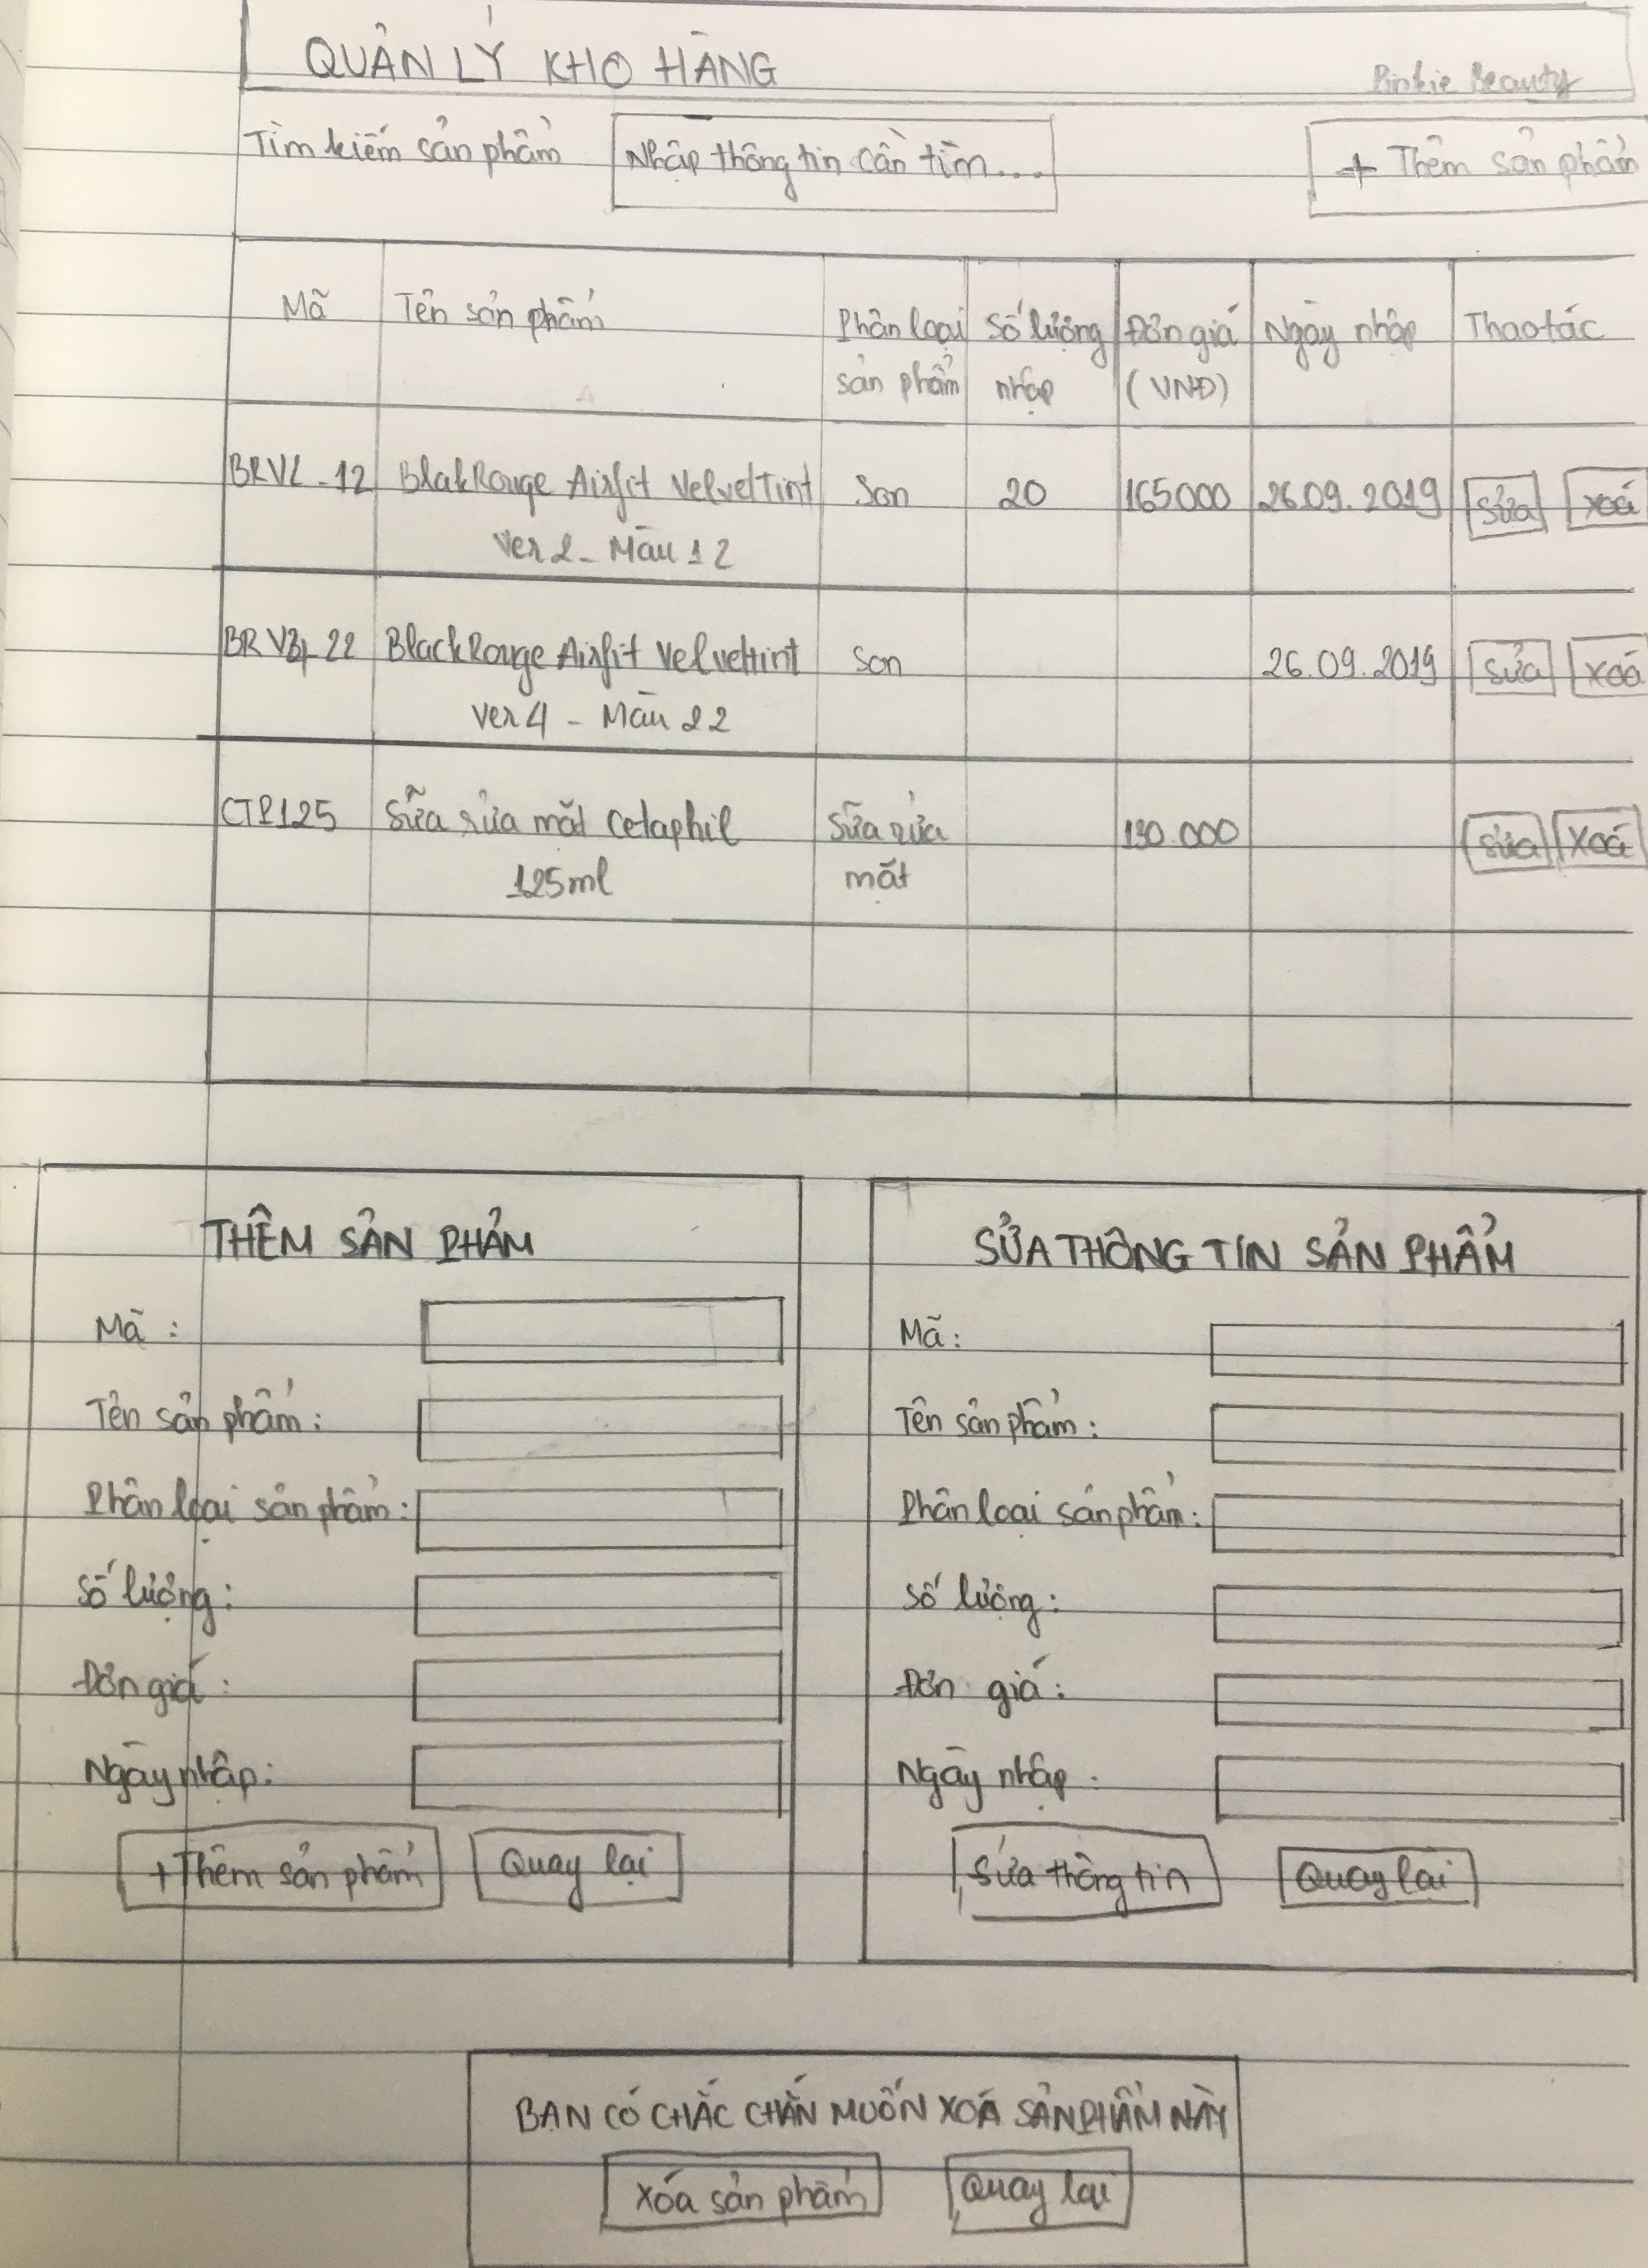 QUẢN LÝ KHO HÀNG
Pinkie Beauty
Tìm kiếm sản phẩm
Nhập thông tin cần tìm...
+ Thêm sản phẩm
Mã
Tên sản phẩm
Phân loại sản phẩm
Số lượng nhập
Đơn giá (VNĐ)
Ngày nhập
Thao tác
BRVL-12
BlakRouge Airfit VelvetTint
Ver 2 - Màu 12
Son
20
165000
26.09.2019
Sửa
Xoá
22
BlackRouge Airfit Velvettint
Ver 4 - Màu 22
Son
26.09.2019
Sửa
Xoá
CTP125
Sữa rửa mặt Cetaphil
125ml
Sữa rửa
mặt
130.000
Sửa
Xoá
THÊM SẢN PHẢM
Mã :
Tên sản phẩm :
Phân loại sản phẩm :
Số lượng :
Đơn giá :
Ngày nhập :
+ Thêm sản phẩm
Quay lại
SỬA THÔNG TIN SẢN PHẨM
Mã :
Tên sản phẩm :
Phân loại sản phẩm :
Số lượng :
Đơn giá :
Ngày nhập :
Sửa thông tin
Quay lại
BẠN CÓ CHẮC CHẮN MUỐN XOÁ SẢN PHẨM NÀY
Xóa sản phẩm
Quay lại